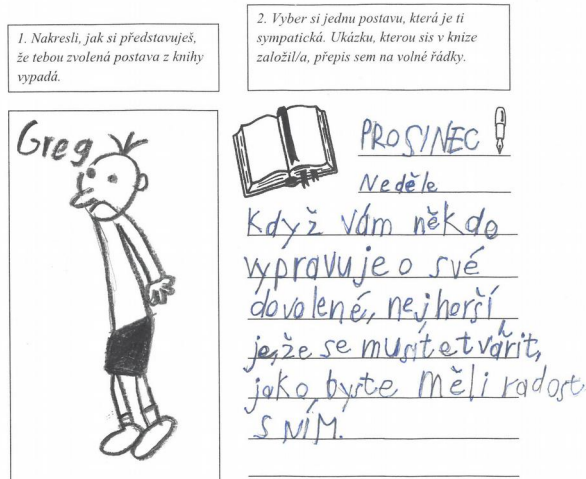 1. Nakresli, jak si představuješ,
že tebou zvolená postava z knihy
vypadá.
2. Vyber si jednu postavu, která je ti
sympatická. Ukázku, kterou sis v knize
založil/a, přepis sem na volné řádky.
Greg
PROSINEC
Neděle
Když vám někdo
vypravuje o své
dovolené, nejhorší
je, že se musíte tvářit,
jako byste měli radost
S NÍM.